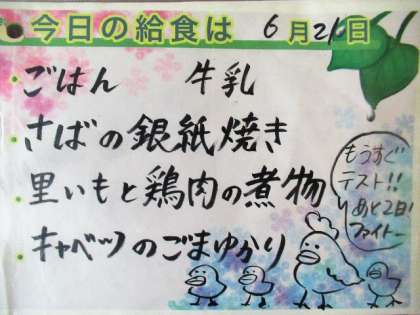 今日の給食は 6月21日
ごはん 牛乳
さばの銀紙焼き
里いもと鶏肉の煮物
キャベツのごまゆかり
もうすぐ
テスト!!
あと2日!
ファイトー